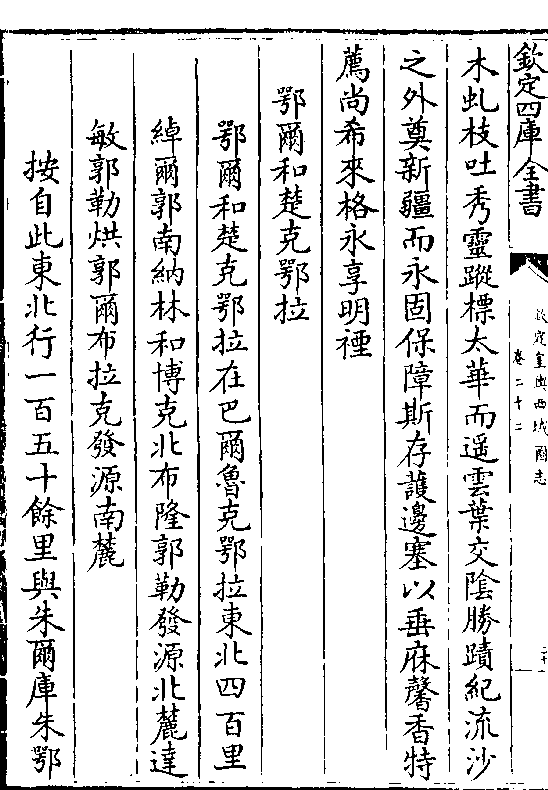 欽定四庫全書
欽定皇輿西域圖志
卷二十二
木虬枝吐秀靈蹤標太華而遥雲葉交陰勝蹟紀流沙
之外奠新疆而永固保障斯存護邊塞以垂庥馨香特
薦尚希來格永享明禋
鄂爾和楚克鄂拉
鄂爾和楚克鄂拉在巴爾魯克鄂拉東北四百里
綽爾郭南納林和博克北布隆郭勒發源北麓達
敏郭勒烘郭爾布拉克發源南麓
按自此東北行一百五十餘里與朱爾庫朱鄂